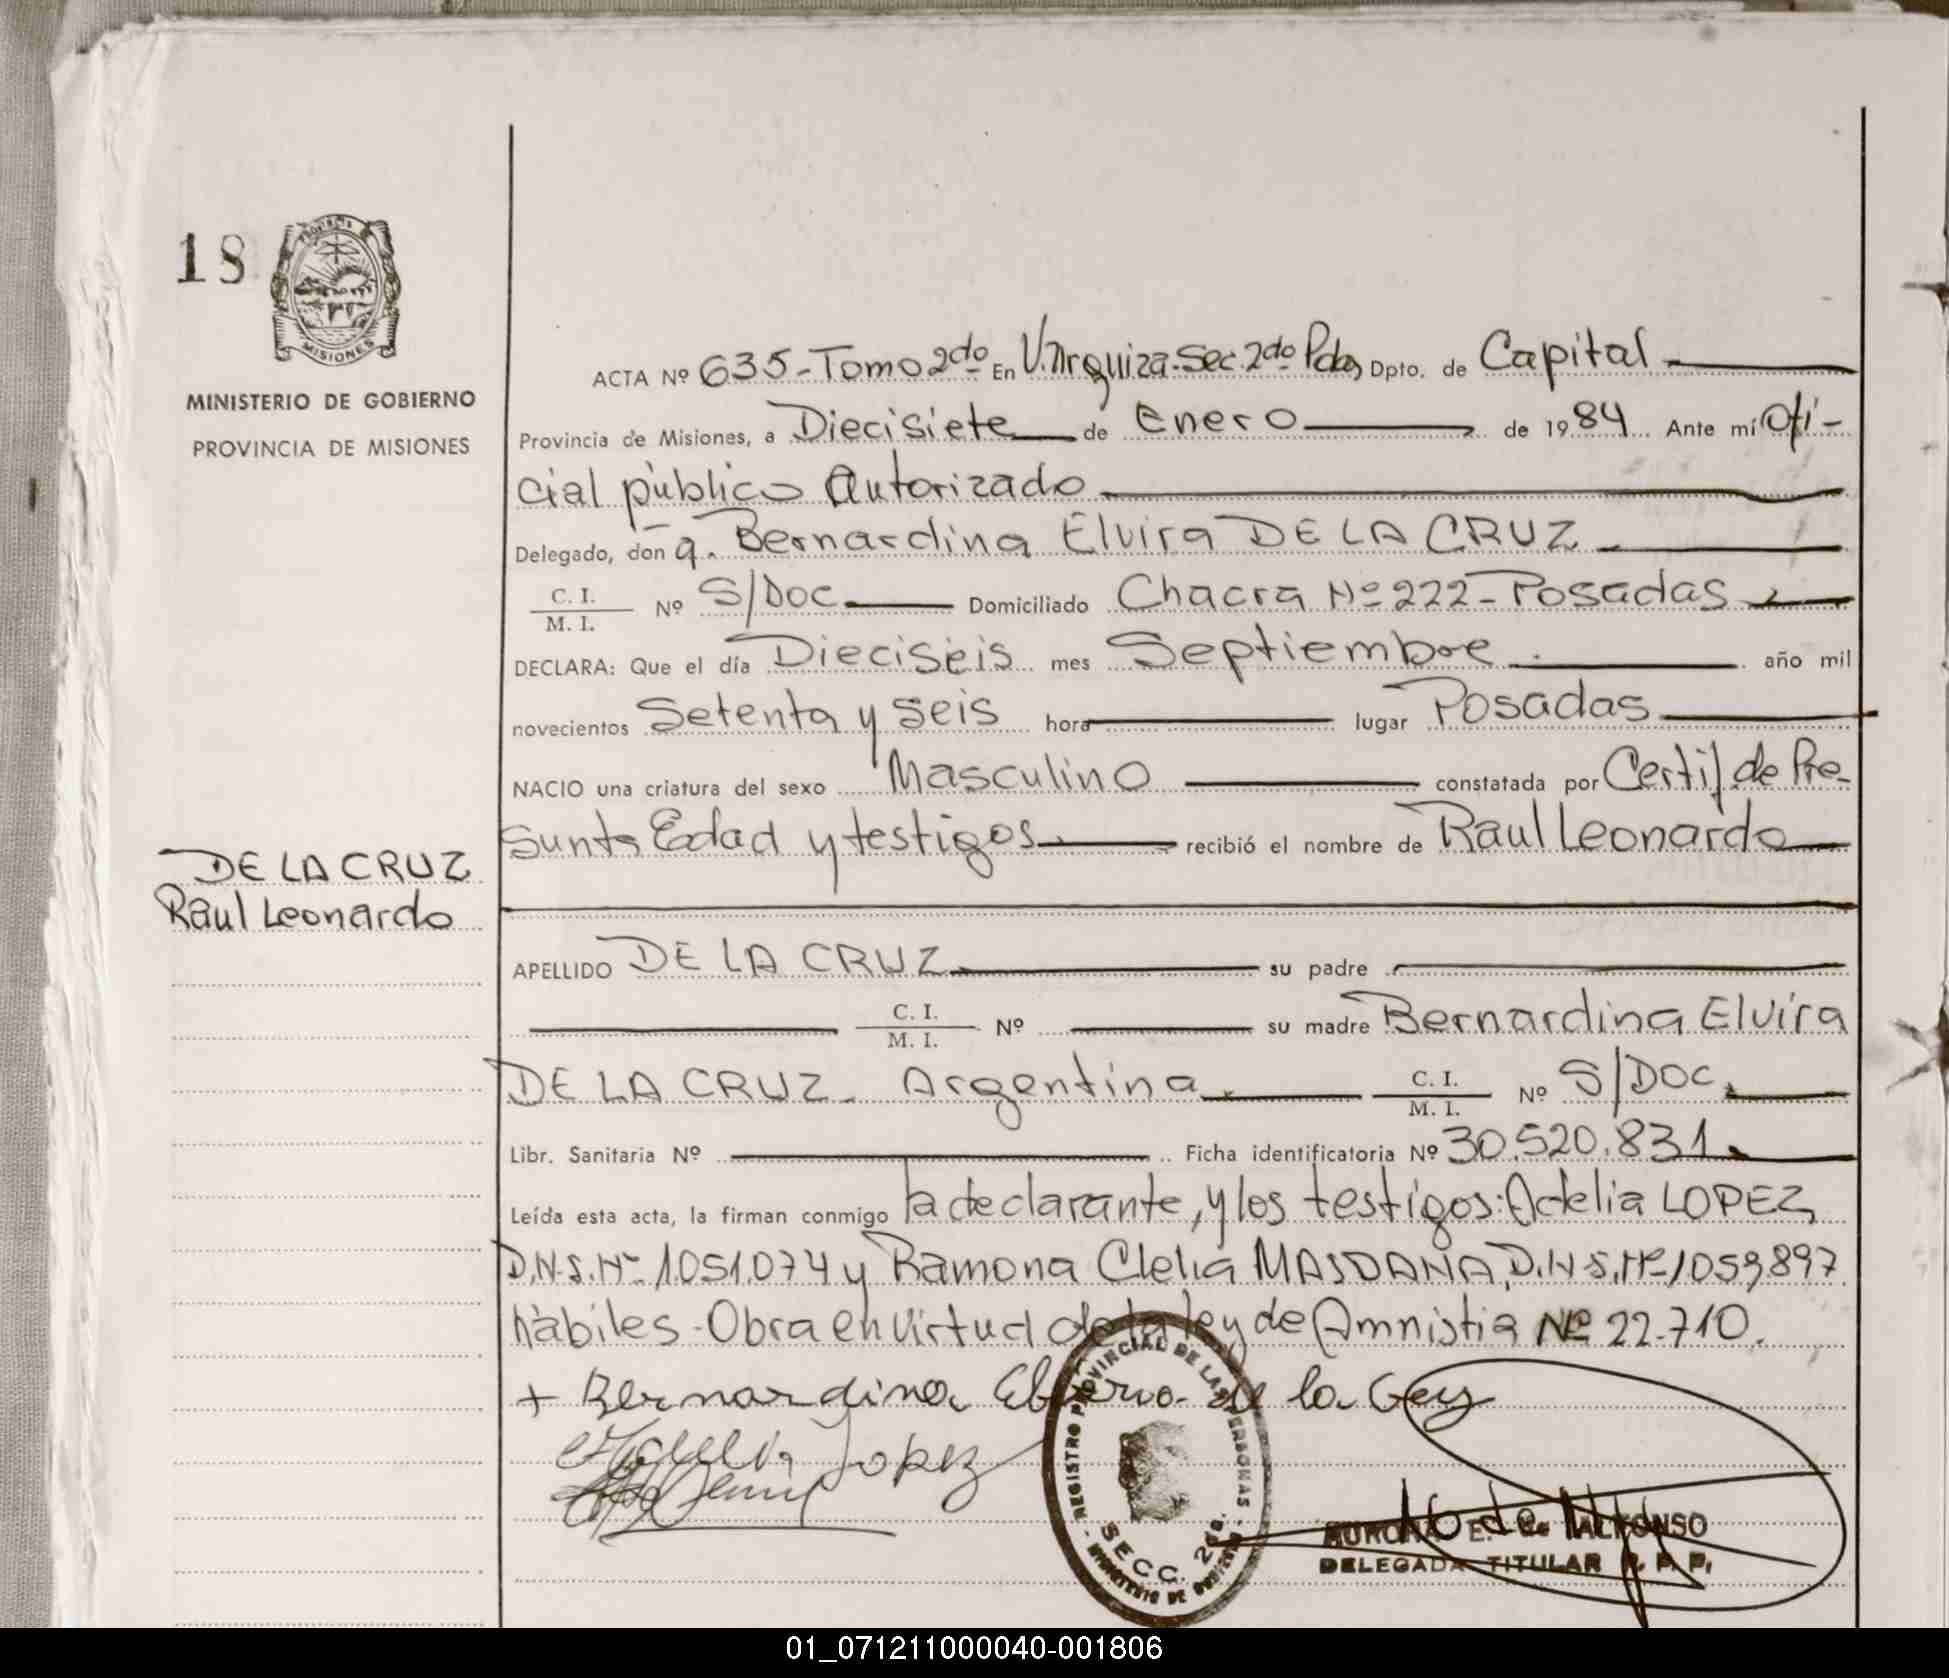 18
PROVINCIA
MISIONES
MINISTERIO DE GOBIERNO
PROVINCIA DE MISIONES
ACTA Nº 635-Tomo 2do En V. Urquiza-Sec. 2do Pdas Dpto. de Capital
Provincia de Misiones, a Diecisiete de Enero de 1984 Ante mí Ofi-
cial público Autorizado
Delegado, don a. Bernardina Elvira DE LA CRUZ
C. I.
M. I. Nº S/DOC. Domiciliado Chacra Nº 222-Posadas
DECLARA: Que el día Dieciseis mes Septiembre año mil
novecientos Setenta y seis hora lugar Posadas
NACIO una criatura del sexo Masculino constatada por Certif. de Pre-
sunta Edad y testigos recibió el nombre de Raul Leonardo
DE LA CRUZ
Raul Leonardo
APELLIDO DE LA CRUZ su padre
C. I.
M. I. Nº su madre Bernardina Elvira
DE LA CRUZ. Argentina C. I.
M. I. Nº S/DOC.
Libr. Sanitaria Nº Ficha identificatoria Nº 30.520.831
Leída esta acta, la firman conmigo la declarante, y los testigos: Adelia LOPEZ,
Nº 1.051.074 y Ramona Clelia Nº 1059897
hàbiles-Obra en virtud de la ley de Amnistia Nº 22.710.
+ Bernardina de la
Lopez
REGISTRO PROVINCIAL DE LAS PERSONAS
SECC. 2da.
MINISTERIO DE GOBIERNO
AURORA E. de ALFONSO
DELEGADA TITULAR R. P. P.
01_071211000040-001806